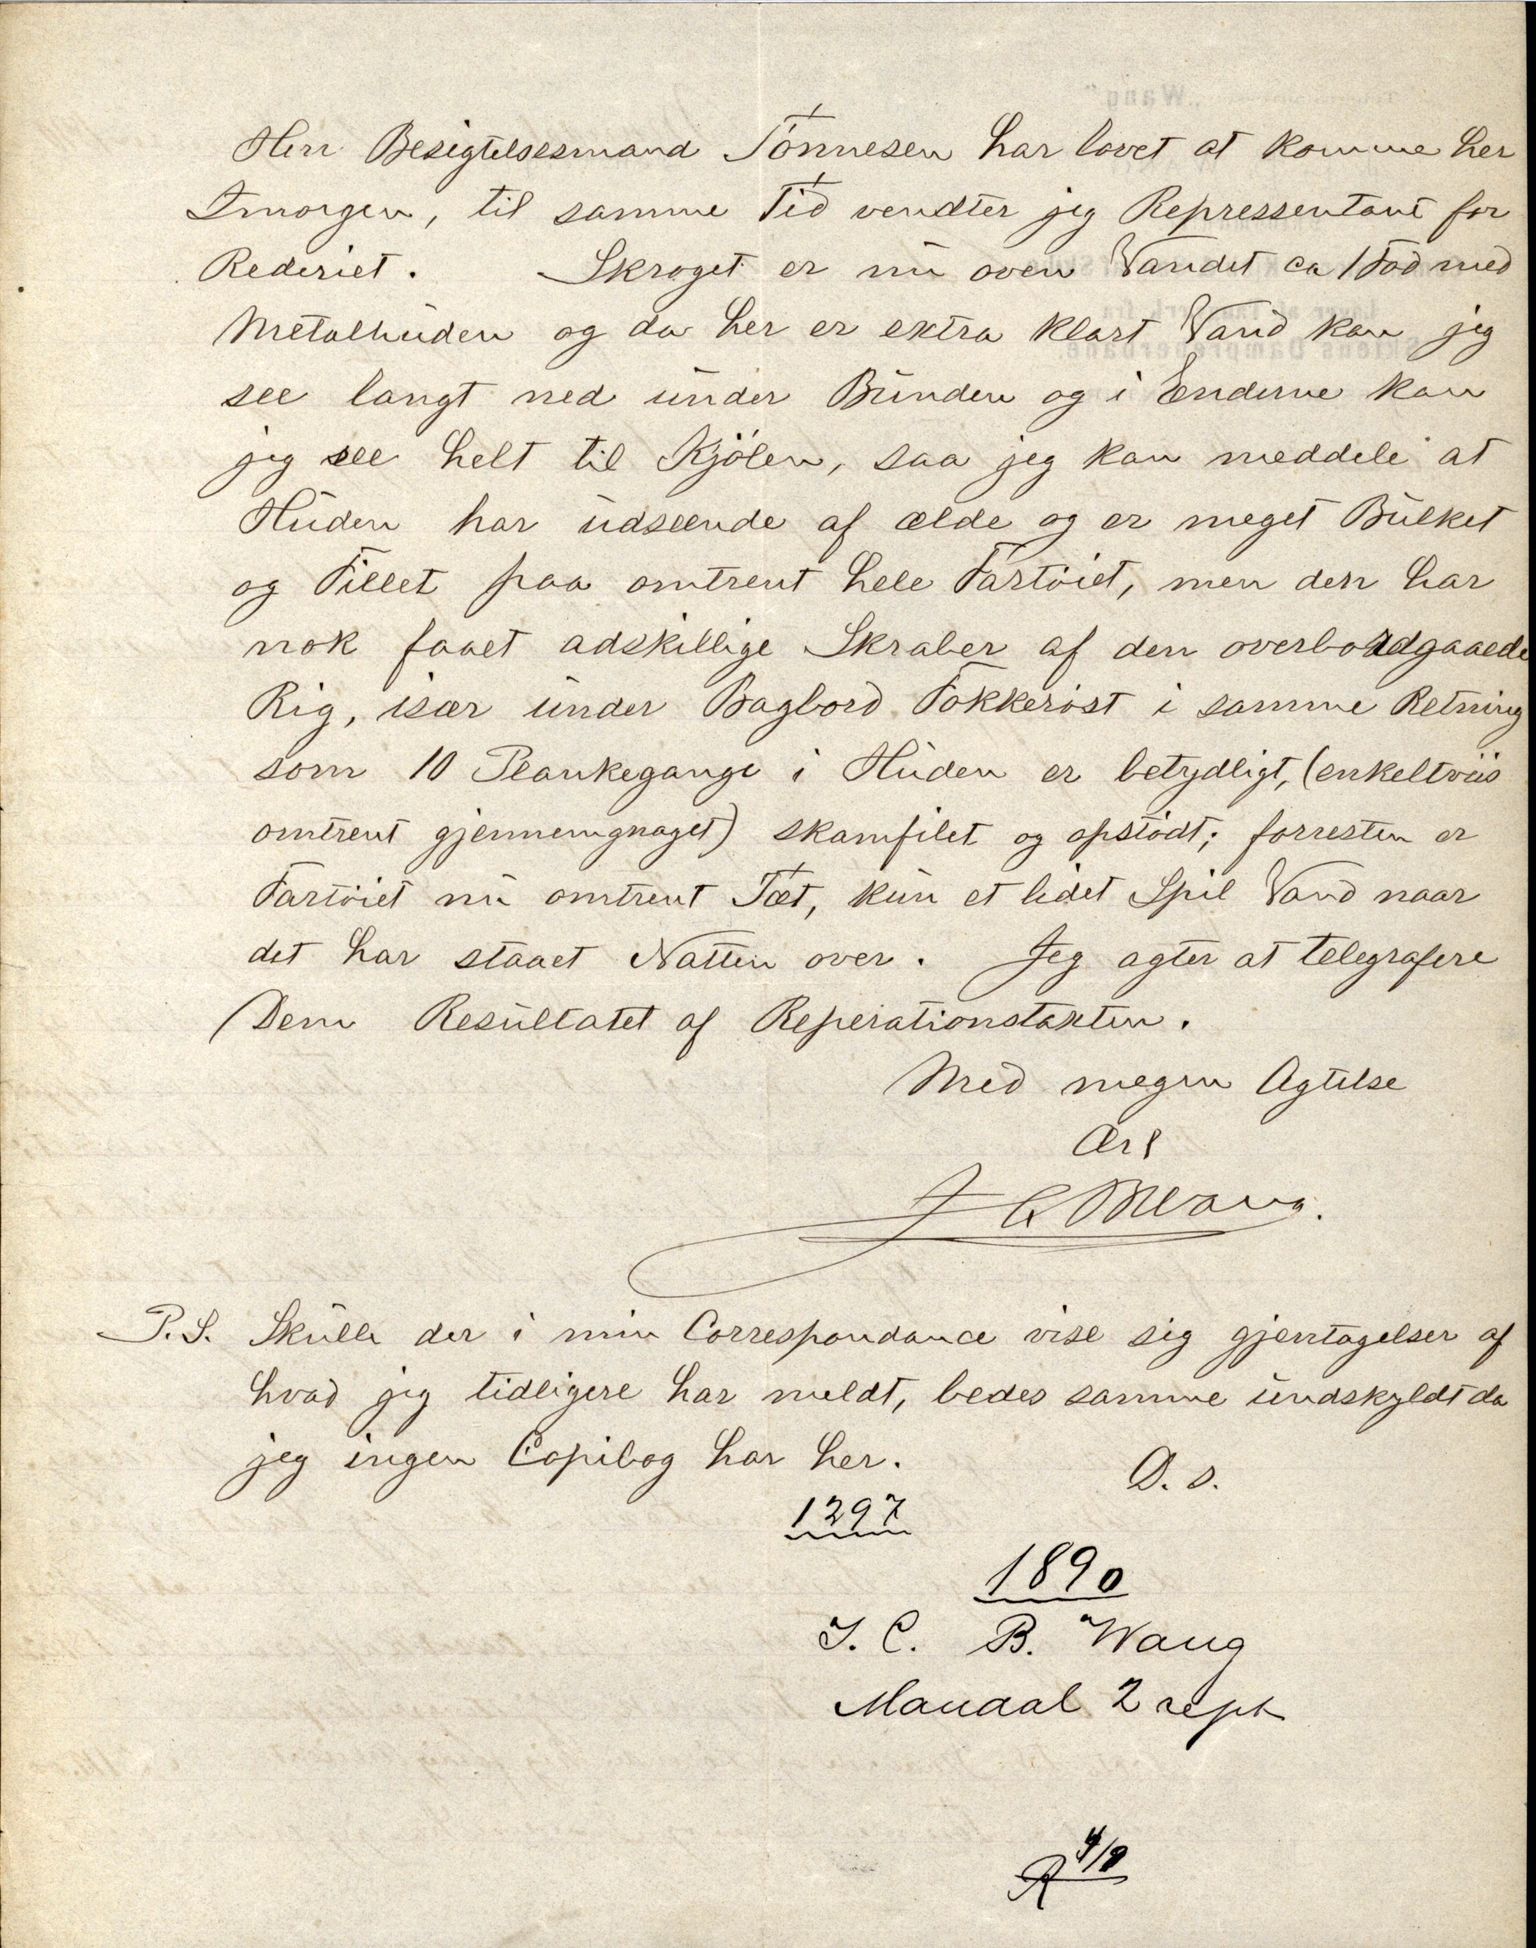 Herr Besigtelsesmand Tönnesen har lovet at komme her
Imorgen, til samme Tid vendter jeg Repressentant for
Rederiet. Skroget er nu oven Vandet ca 1 Fod med
Metalhuden og da her er extra klart Vand kan jeg
see langt ned under Bunden og i Enderne kan
jeg see helt til Kjölen, saa jeg kan meddele at
Huden har udseende af ælde og er meget Bulket
og Fillet paa omtrent hele Fartöiet, men den har
nok faaet adskillige Skraber af den overbordgaaede
Rig, især under Bagbord Fokkeröst i samme Retning
som 10 Plankegange i Huden er betydligt, (enkeltviis
omtrent gjennemgnaget) skamfilet og opstödt; forresten er
Fartöiet nu omtrent Tæt, kun et lidet Spil Vand naar
det har staaet Natten over. Jeg agter at telegrafere
Dem Resultatet af Reperationstaxten.
Med megen Agtelse
Ær
J C B Wang.
P.S. Skulle der i min Correspondance vise sig gjentagelser af
hvad jeg tidligere har meldt, bedes samme undskyldt da
jeg ingen Copibog har her. D. s.
1297
1890
I. C. B. Wang
Mandal 2 sept
4/9